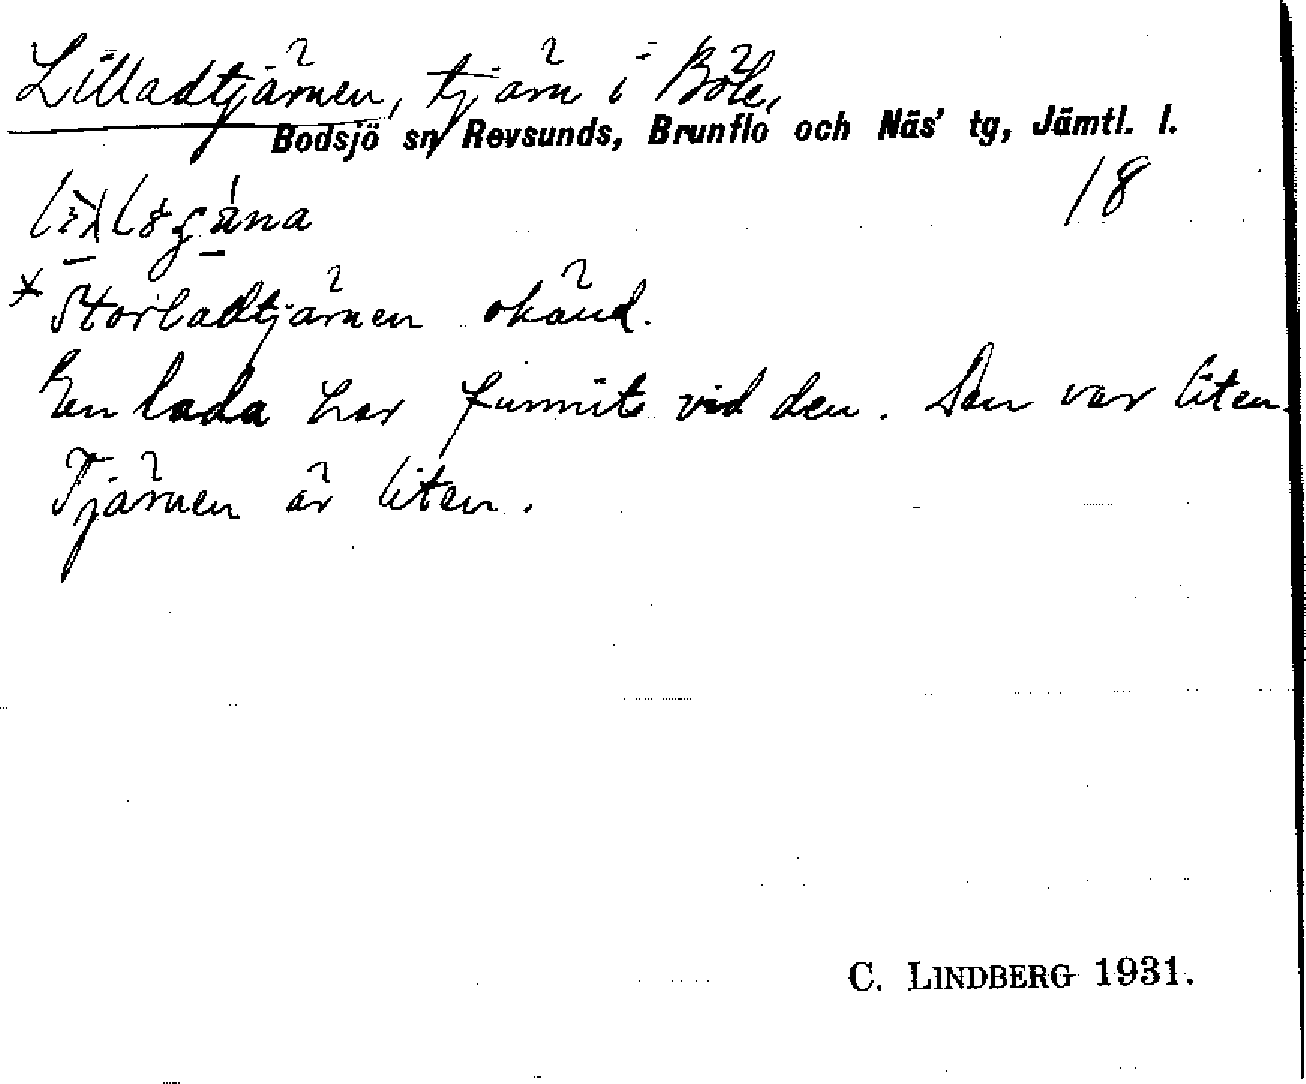 Lilladtjärnen, tjärn i Böle,
Bodsjö sn, Revsunds, Brunflo och Näs' tg, Jämtl. l.
18
*Storladtjärnen okänd.
En lada har funnits vid den. Den var liten.
Tjärnen är liten.
C. LINDBERG 1931.